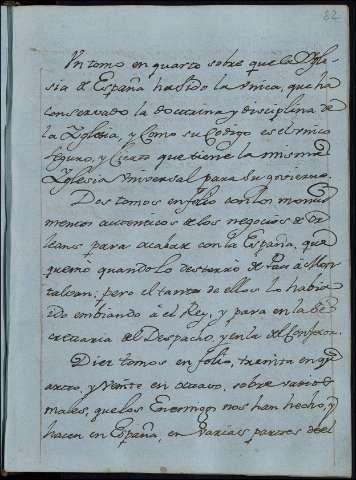 82
Un tomo en quarto sobre que la Ygle-
sia de España ha sido la unica, que ha
conservado la doctrina y disciplina de
la Yglesia, y como su Codigo es el unico
seguro, y cierto que tiene la misma
Yglesia universal para su govierno.
Dos tomos en folio con los monu-
mentos autenticos de los negocios de Or-
leans para acabar con la España, que
quemò quando lo desterrò de Paris à Mon-
talvan; pero el tanto de ellos lo habia
ido embiando a el Rey, y para en la Se-
cretaria del Despacho, y en la del Confesor.
Diez tomos en folio, treinta en qu-
arto, y veinte en octavo, sobre varios
males, que los Enemigos nos han hecho, y
hacen en España, en varias partes de el